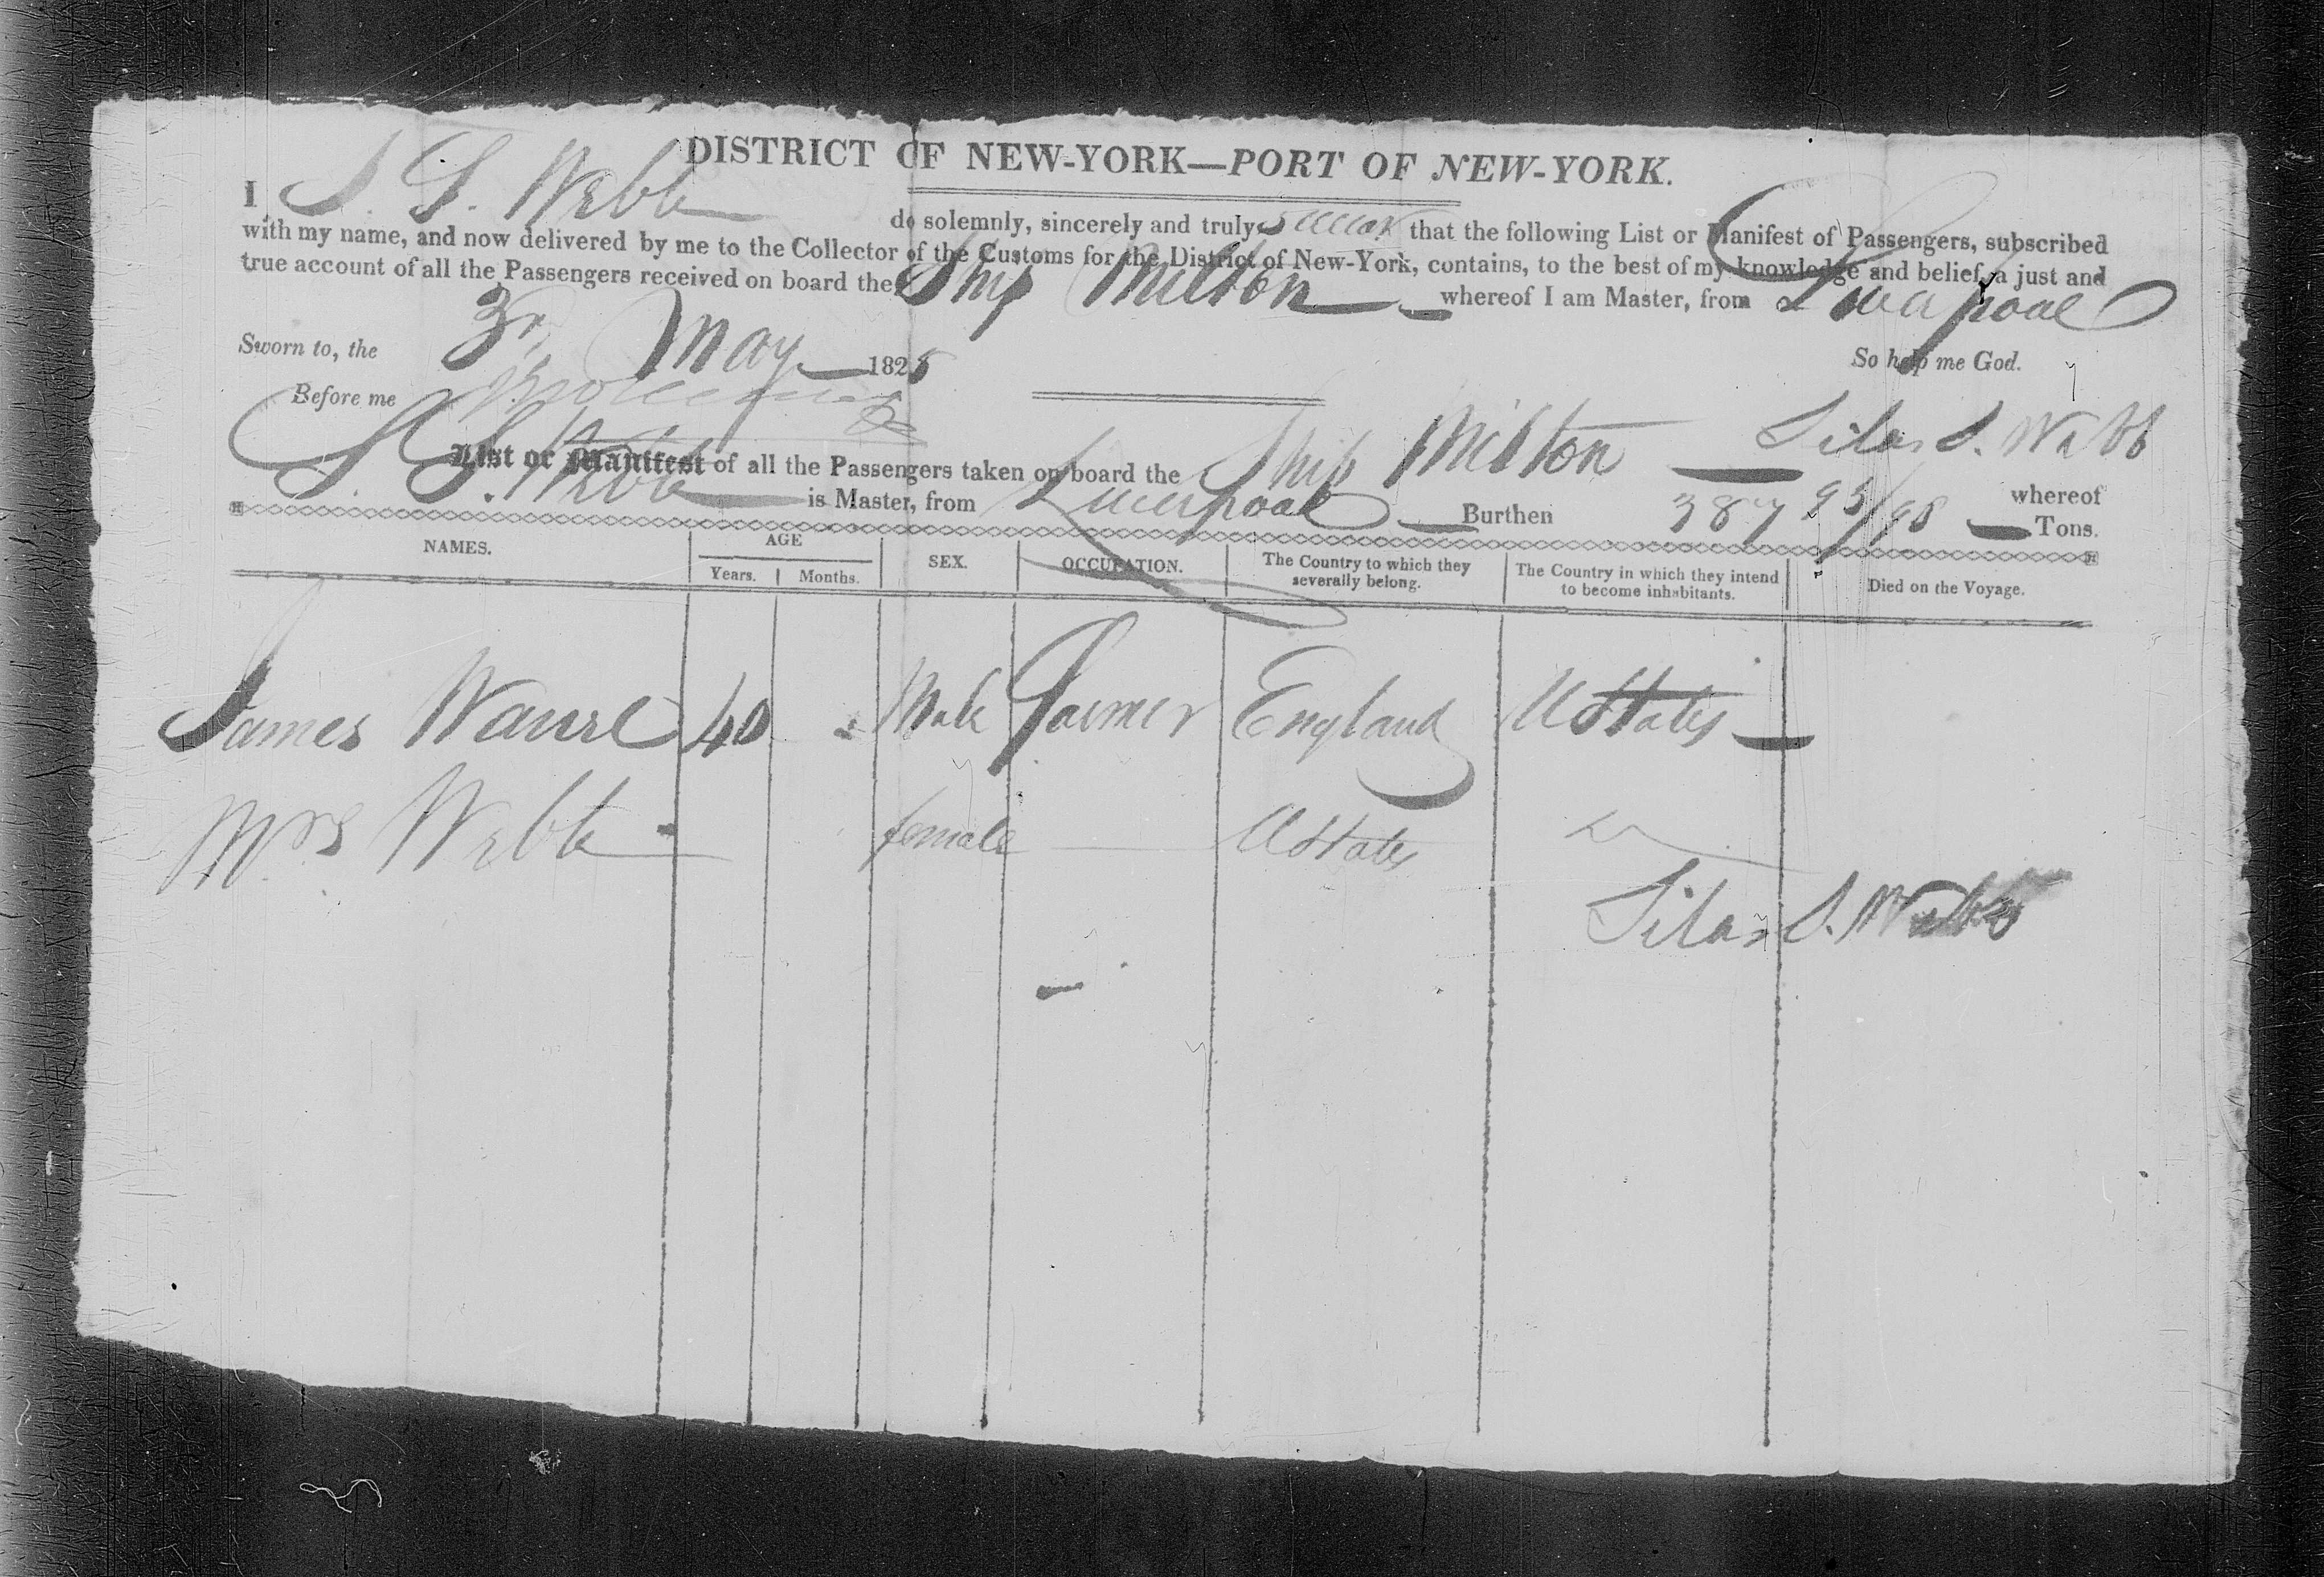 DISTRICT OF NEW-YORK—PORT OF NEW-YORK.
I, S. S. Webb do solemnly, sincerely and truly swear that the following List or Manifest of Passengers, subscribed
with my name, and now delivered by me to the Collector of the Customs for the District of New-York, contains, to the best of my knowledge and belief, a just and
true account of all the Passengers received on board the Ship Milton whereof I am Master, from Liverpool
Sworn to, the 3r, May 1825 So help me God.
Before me
Silas S. Webb
List or Manifest of all the Passengers taken on board the Ship Milton whereof
S. S. Webb is Master, from Liverpool Burthen 387 93/95 Tons.
NAMES. AGE SEX. OCCUPATION. The Country to which they severally belong. The Country in which they intend to become inhabitants. Died on the Voyage.
Years. Months.
James 40 Male Farmer England UStates
Mrs Webb female UStates
Silas S. Webb